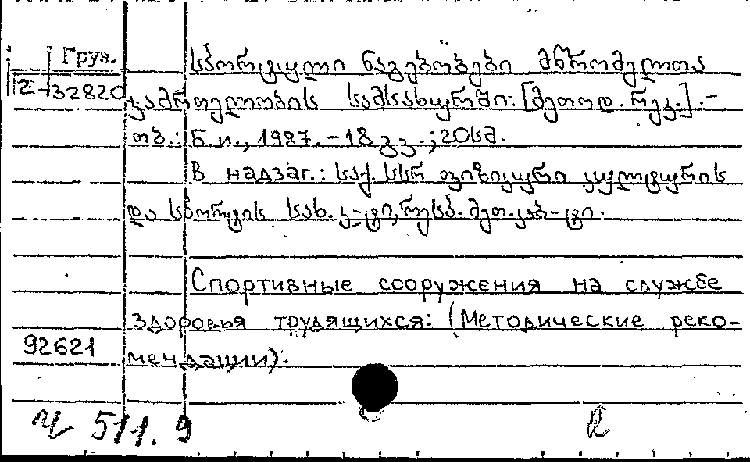 Груз.
სპორტული ნაგებობები მშრომელთა
Г-32820
ჯამრთელობის სამსახურში: [მეთოდ. რეკ.]. -
თბ.: Б.и., 1987. - 18 გვ.; 20სმ.
В надзаг.: საქ. სსრ ფიზიკური კულტურის
და სპორტის სახ. კ-ტი, რესპ. მეთ. კაბ-ტი.
Спортивные сооружения на службе
здоровья трудящихся: (Методические реко-
92621
мендации).
Ч 511.9